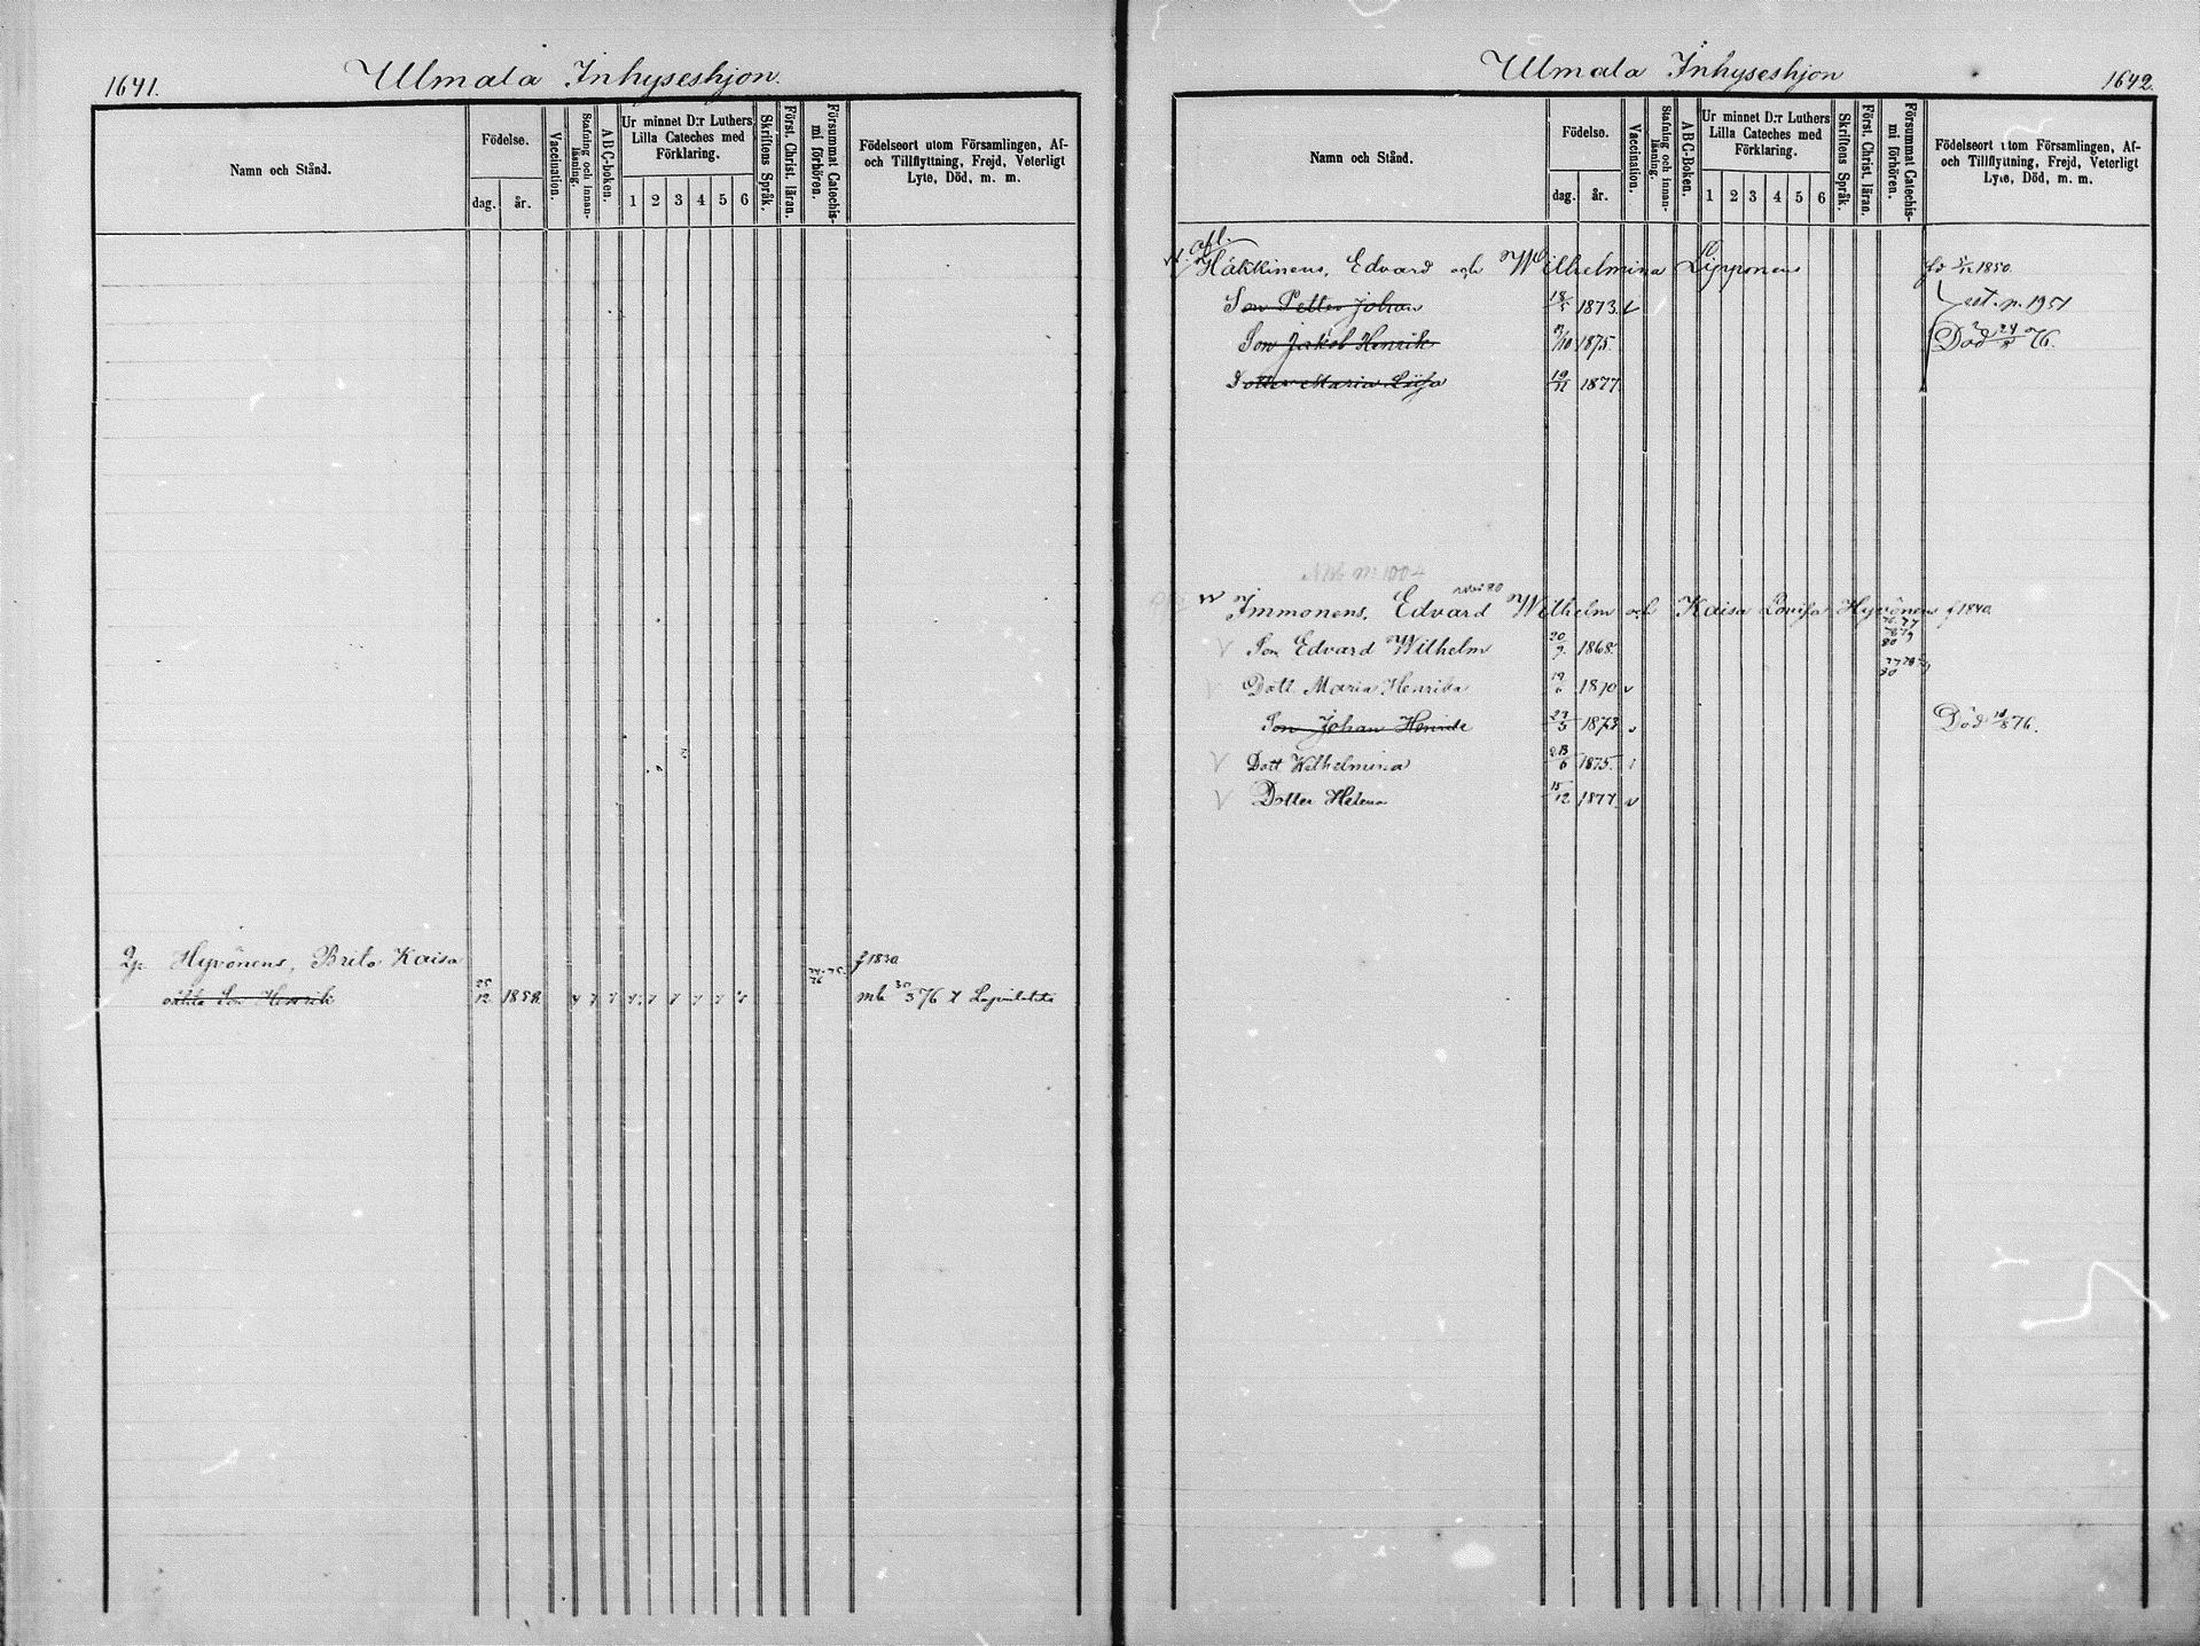 1641.
Ulmala Inhyseshjon.
Namn och Stånd.
Födelse.
dag. år.
Vaccination.
Stafning och innan-läsning.
A B C-boken.
Ur minnet D:r Luthers
Lilla Cateches med
Förklaring.
1 2 3 4 5 6
Skriftens Språk.
Först. Christ. läran.
Försummat Catechis-
mi förhören.
Födelseort utom Församlingen, Af-
och Tillflyttning, Frejd, Veterligt
Lyte, Död, m. m.
Hyvönens, Brita Kaisa f 1830
74. 75.
76
oäkta Son Henrik 25/12 1858 mb 30/3 76
Ulmala Inhyseshjon
1642.
Namn och Stånd.
Födelse.
dag. år.
Vaccination.
Stafning och innan-läsning.
A B C-Boken.
Ur minnet D:r Luthers
Lilla Cateches med
Förklaring.
1 2 3 4 5 6
Skriftens Språk.
Först. Christ. läran.
Försummat Catechis-
mi förhören.
Födelseort utom Församlingen, Af-
och Tillflyttning, Frejd, Veterligt
Lyte, Död, m. m.
afl.
Häkkinens, Edvard och Wilhelmina Lipponens 1850.
Son Petter Johan 18/5 1873 v p. 1951
Son Jakob Henrik /10 1875. Död 76.
Dotter Maria Liisa 19/11 1877
1004
Immonens, Edvard Wilhelm och Kaisa Lovisa Hyvönens f 1840.
76. 77
78 79
80
V Son Edvard Wilhelm 20/9. 1868.
Dott Maria Henrika 19/6 1870 v
Son Johan Henrik 29/5 1873 v Död 76.
V Dott Wilhelmina /6 1875.
V Dotter Helena 15/12 1877 v